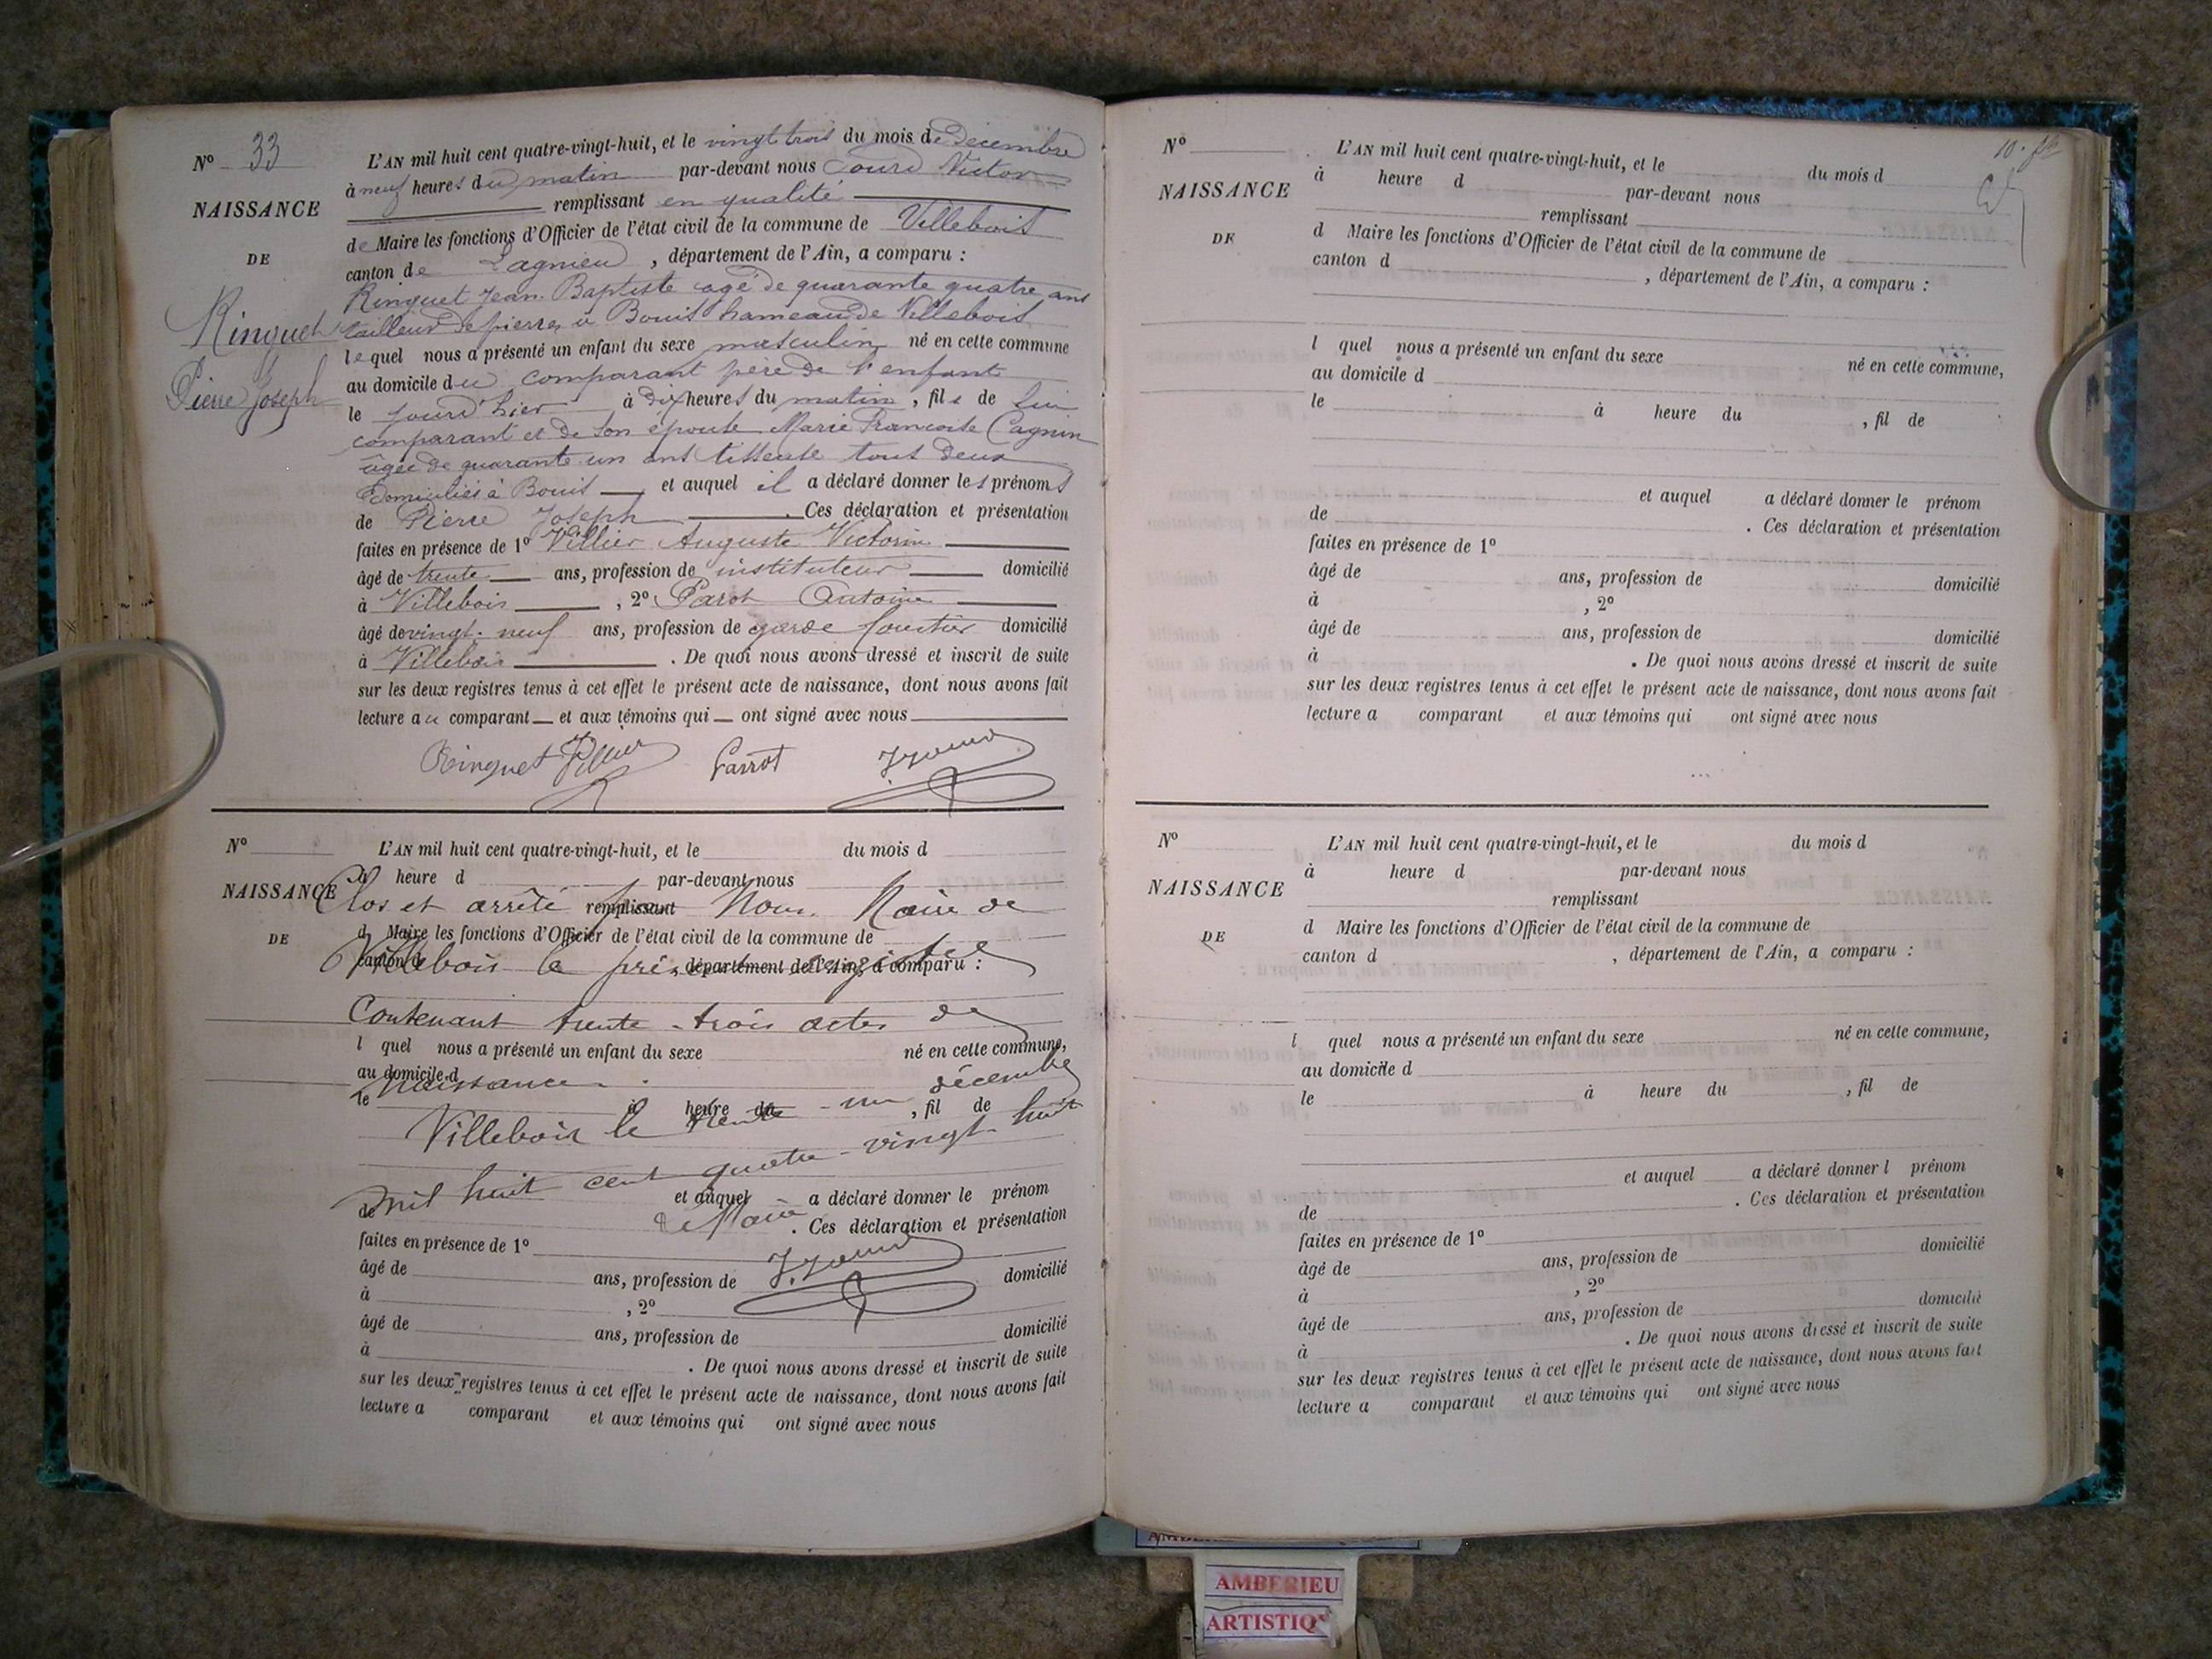 Nº 33
NAISSANCE
DE
Ringuet
Pierre Joseph
L'AN mil huit cent quatre-vingt-huit, et le vingt trois du mois de Décembre
à neuf heures du matin par-devant nous Victor
remplissant en qualité
de Maire les fonctions d'Officier de l'état civil de la commune de Villebois
canton de Lagnieu, département de l'Ain, a comparu :
Ringuet Jean Baptiste agé de quarante quatre ans
tailleur de pierres à Bouis hameau de Villebois
lequel nous a présenté un enfant du sexe masculin né en cette commune
au domicile du comparant père de l'enfant
le jour d'hier à dix heures du matin, fils de lui
comparant et de son épouse Marie Francoise Cagnin
âgée de quarante un ans tisseuse tous deux
domiciliés à Bouis et auquel il a déclaré donner les prénoms
de Pierre Joseph. Ces déclaration et présentation
faites en présence de 1º Villier Auguste Victorin
âgé de trente ans, profession de instituteur domicilié
à Villebois, 2º Parot Antoine
âgé de vingt-neuf ans, profession de garde forestier domicilié
à Villebois. De quoi nous avons dressé et inscrit de suite
sur les deux registres tenus à cet effet le présent acte de naissance, dont nous avons fait
lecture au comparant et aux témoins qui ont signé avec nous
Ringuet Villier Parrot
Nº
NAISSANCE
DE
L'AN mil huit cent quatre-vingt-huit, et le du mois d
à heure d par-devant nous
Clos et arrêté par Nous Maire de
remplissant
d Maire les fonctions d'Officier de l'état civil de la commune de
Villebois le présent registre
canton de , département de l'Ain, a comparu :
Contenant trente-trois actes de
l quel nous a présenté un enfant du sexe né en cette commune,
au domicile d
naissance.
le à heure du , fil de
Villebois le trente-un décembre
mil huit cent quatre-vingt-huit
et auquel a déclaré donner le prénom
de . Ces déclaration et présentation
Le Maire
faites en présence de 1º
âgé de ans, profession de domicilié
à , 2º
âgé de ans, profession de domicilié
à . De quoi nous avons dressé et inscrit de suite
sur les deux registres tenus à cet effet le présent acte de naissance, dont nous avons fait
lecture a comparant et aux témoins qui ont signé avec nous
Nº
NAISSANCE
DE
L'AN mil huit cent quatre-vingt-huit, et le du mois d
à heure d par-devant nous
remplissant
d Maire les fonctions d'Officier de l'état civil de la commune de
canton d , département de l'Ain, a comparu :
l quel nous a présenté un enfant du sexe né en cette commune,
au domicile d
le à heure du , fil de
et auquel a déclaré donner le prénom
de . Ces déclaration et présentation
faites en présence de 1º
âgé de ans, profession de domicilié
à , 2º
âgé de ans, profession de domicilié
à . De quoi nous avons dressé et inscrit de suite
sur les deux registres tenus à cet effet le présent acte de naissance, dont nous avons fait
lecture a comparant et aux témoins qui ont signé avec nous
Nº
NAISSANCE
DE
L'AN mil huit cent quatre-vingt-huit, et le du mois d
à heure d par-devant nous
remplissant
d Maire les fonctions d'Officier de l'état civil de la commune de
canton d , département de l'Ain, a comparu :
l quel nous a présenté un enfant du sexe né en cette commune,
au domicile d
le à heure du , fil de
et auquel a déclaré donner l prénom
de . Ces déclaration et présentation
faites en présence de 1º
âgé de ans, profession de domicilié
à , 2º
âgé de ans, profession de domicilié
à . De quoi nous avons dressé et inscrit de suite
sur les deux registres tenus à cet effet le présent acte de naissance, dont nous avons fait
lecture a comparant et aux témoins qui ont signé avec nous
AMBERIEU
ARTISTIQ